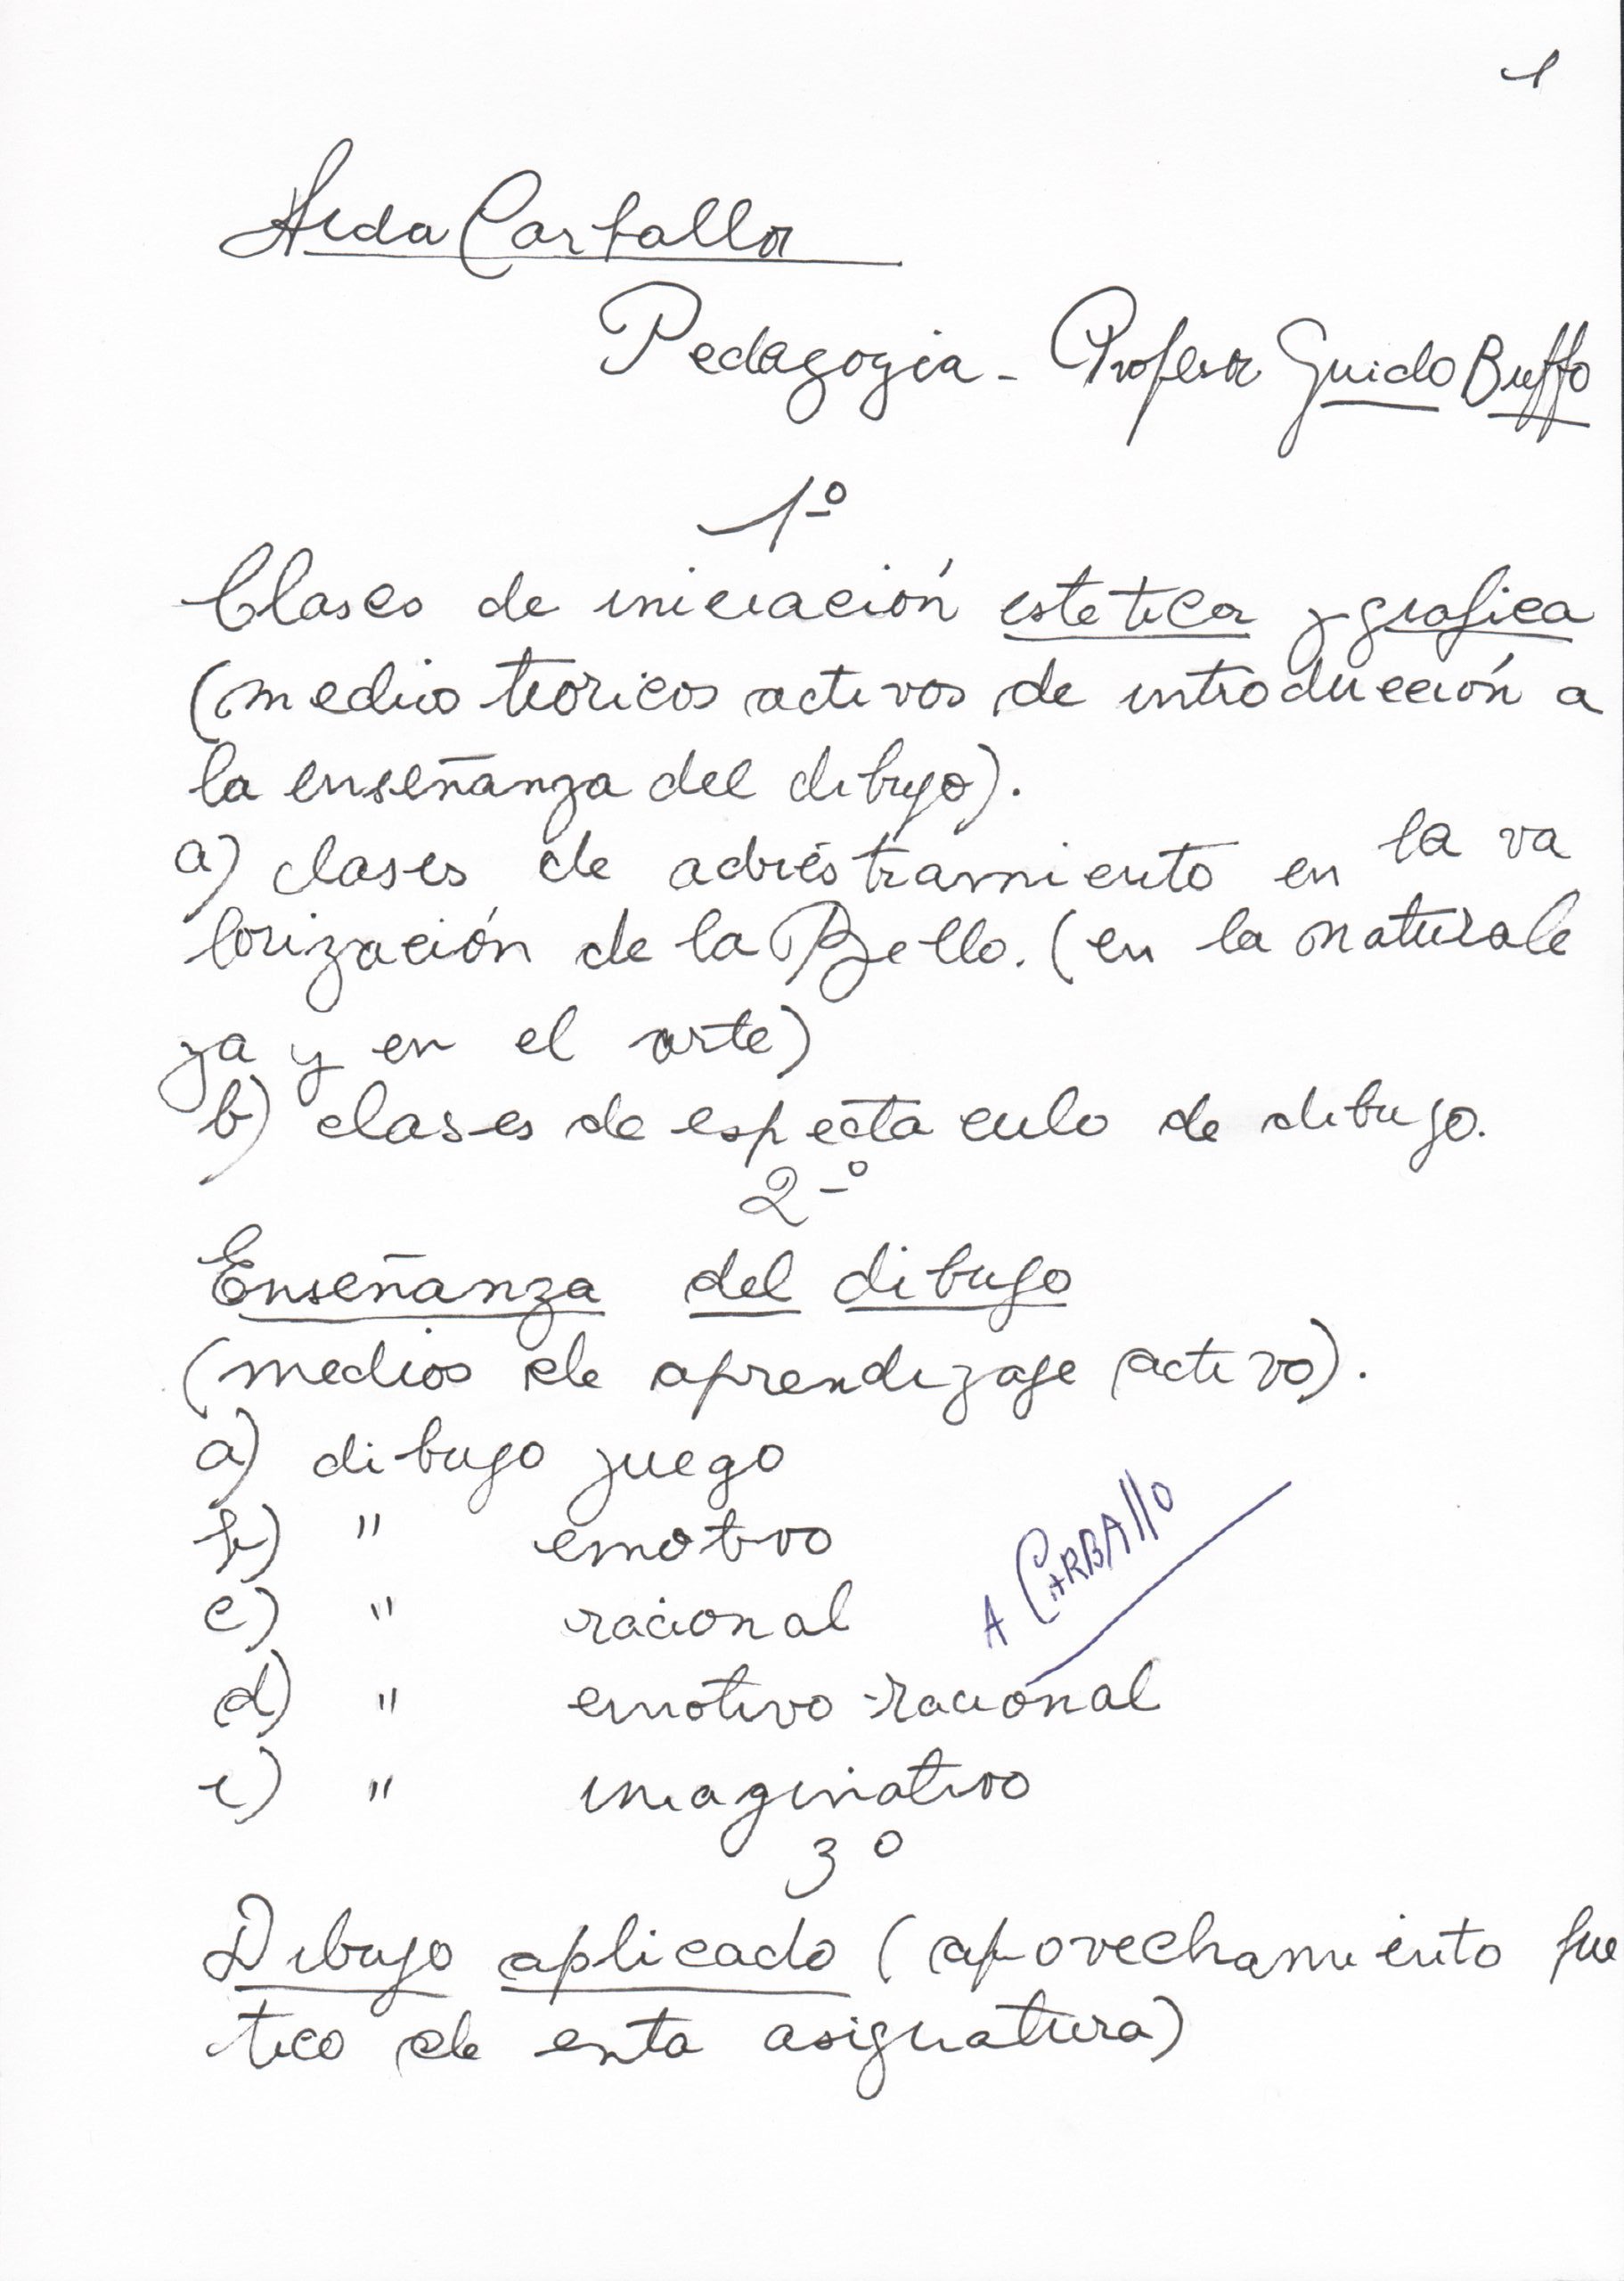 1
Aida Carballo
Pedagogia - Profesor Guido Buffo
1º
Clases de iniciación estetica y grafica
(medios teoricos activos de introducción a
la enseñanza del dibujo).
a) clases de adiestramiento en la va
lorización de la Bello. (en la naturale
za y en el arte)
b) clases de espectaculo de dibujo.
2º
Enseñanza del dibujo
(medios de aprendizaje activo).
a) dibujo juego
b) " emotivo
c) " racional
A CARBAllO
d) " emotivo-racional
e) " imaginativo
3º
Dibujo aplicado (apovechamiento
tico de esta asignatura)